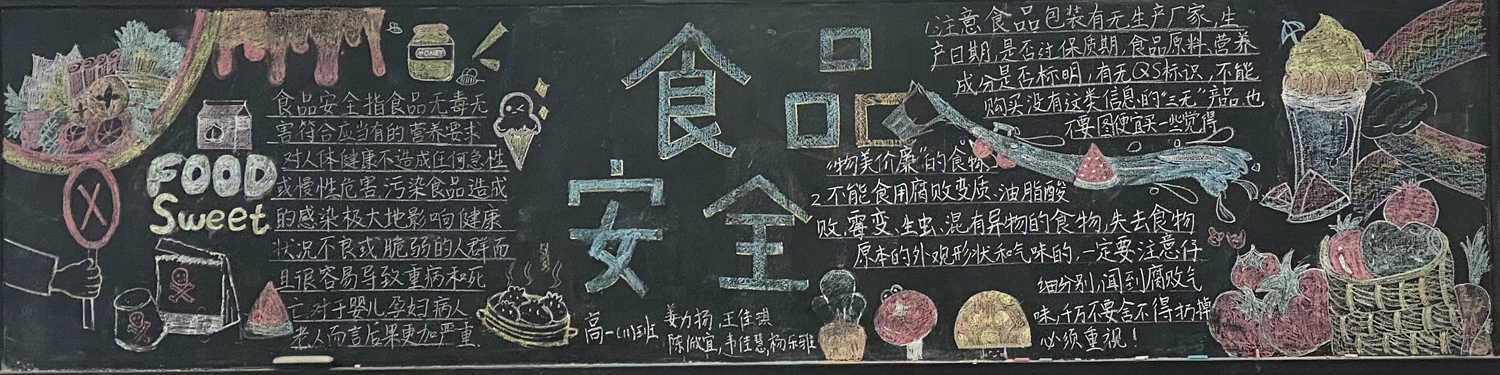 HONEY
食品安全指食品无毒无
害符合应当有的营养要求
对人体健康不造成任何急性
或慢性危害污染食品造成
的感染极大地影响健康
状况不良或脆弱的人群而
且很容易导致重病和死
亡.对于婴儿孕妇病人
老人而言后果更加严重
FOOD
Sweet
X
食品
安全
高一(11)班
姜力扬,王佳琪
陈欣宜,韦佳慧,杨乐雅
1.注意食品包装有无生产厂家,生
产日期,是否过保质期,食品原料,营养
成分是否标明,有无QS标识,不能
购买没有这类信息的“三无”产品也
不要图便宜买一些觉得
“物美价廉”的食物.
2.不能食用腐败变质,油脂酸
败,霉变,生虫,混有异物的食物,失去食物
原本的外观形状和气味的,一定要注意仔
细分别,闻到腐败气
味,千万不要舍不得扔掉
必须重视!